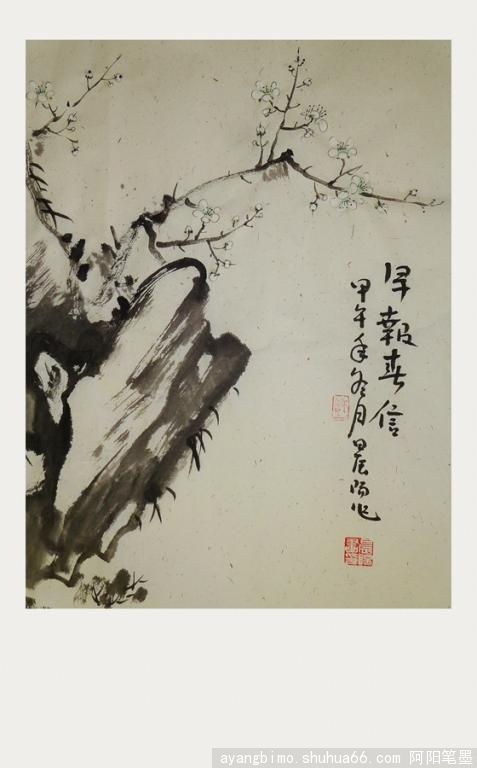 早報春信
甲午年冬月晨陽作
ayangbimo.shuhua66.com 阿阳笔墨